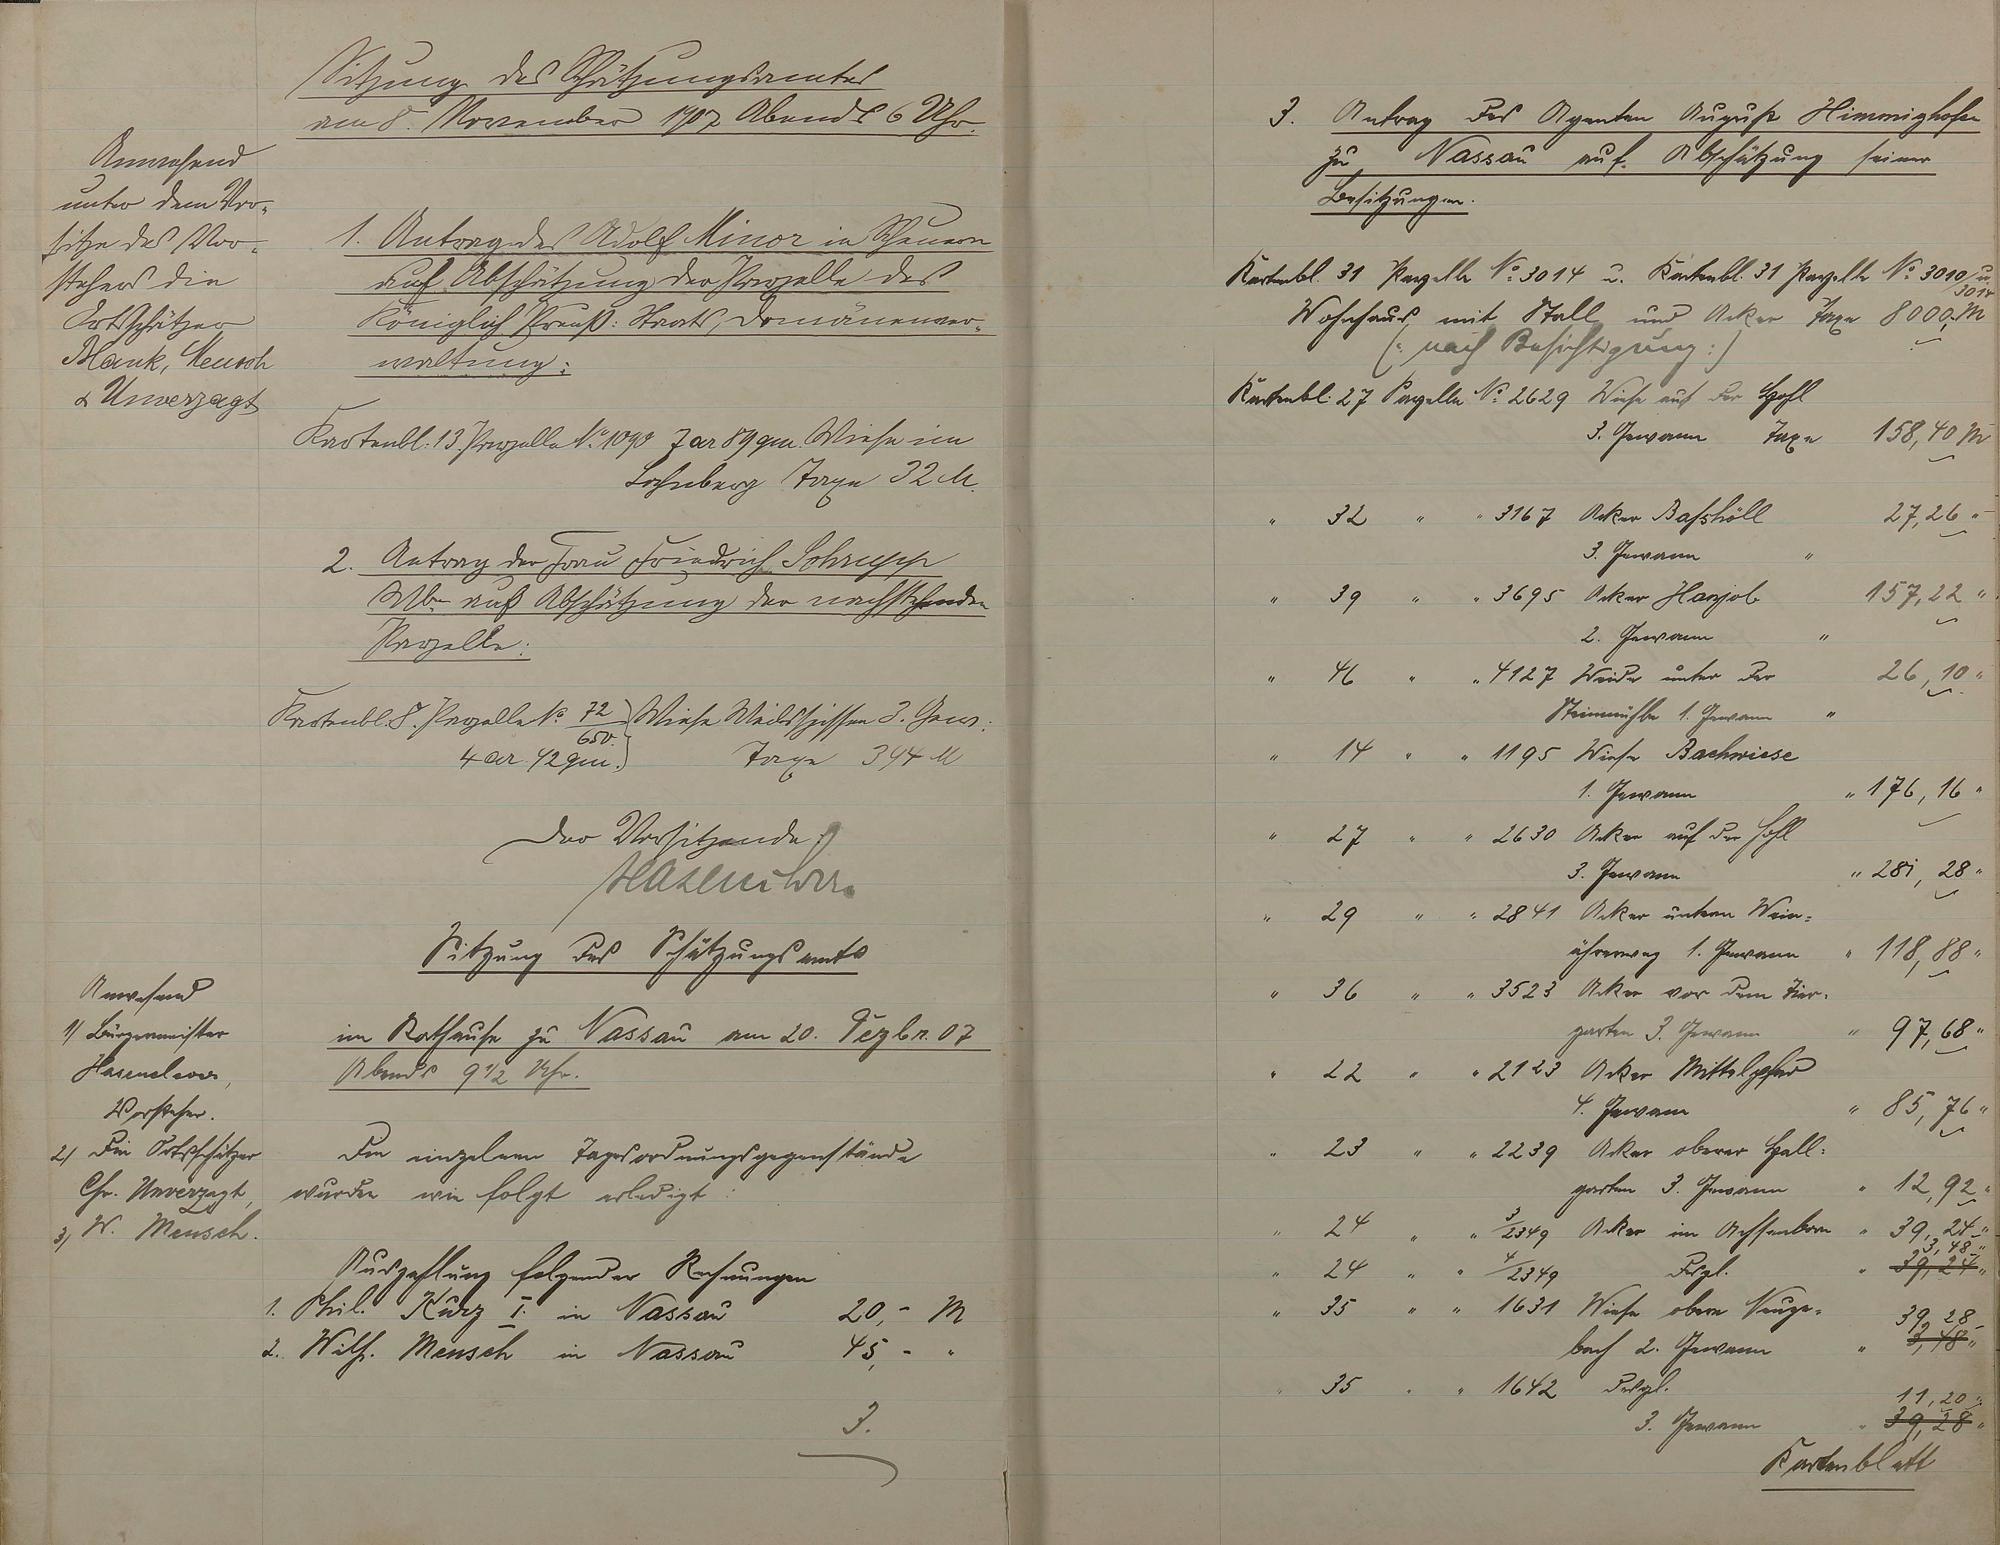 Sitzung des Schätzungsamtes
am 8. November 1907 Abends 6 Uhr.
Anwesend
unter dem Vor-
sitze des Vor-
stehers die
Ortsschätzer
Blank, Meusch
& Unverzagt
1. Antrag des Adolf Minor in Scheuern
auf Abschätzung der Parzelle des
Königlich Preuß: Staats, Domänenver-
waltung:
Kartenbl. 13. Parzelle No. 1090 7 ar 89 qm. Wiese im
Lahnberg Taxe 32 M.
2. Antrag der Frau Friedrich Schrupp
Wb. auf Abschätzung der nachstehenden
Parzelle:
Kartenbl. 8. Parzelle No. 72/650. Wiese 3. Gew:
4 ar 42 qm. Taxe 394 M
Der Vorsitzende:
Hasenclever.
Sitzung des Schätzungsamts
im Rathause zu Nassau am 20. Dezbr. 07
Abends 9 1/2 Uhr.
Anwesend
1) Bürgermeister
Hasenclever,
Vorsteher.
2) Die Ortsschätzer
Chr. Unverzagt,
3) W. Meusch.
Die einzelnen Tagesordnungsgegenstände
wurden wie folgt erledigt:
Auszahlung folgender Rechnungen
1. Phil. Kurz I. in Nassau 20,- M
2. Wilh. Meusch in Nassau 45,- "
3.
3. Antrag des Agenten August Himmighofen
zu Nassau auf Abschätzung seiner
Besitzungen.
Kartenbl. 31 Parzelle No. 3014 u. Kartenbl. 31 Parzelle No. 3010/3014 u.
Wohnhaus mit Stall und Acker Taxe 8000,- M
(: nach Besichtigung :)
Kartenbl. 27 Parzelle No. 2629 Wiese auf der Hohl
3. Gewann Taxe 158,40 M
" 32 " " 3167 Acker Bafshöll 27,26 "
3. Gewann "
" 39 " " 3695 Acker Hanjob 157,22 "
2. Gewann "
" 46 " " 4127 Weide unter der 26,10 "
Steinmühle 1. Gewann "
" 14 " " 1195 Wiese Bachwiese
1. Gewann " 176,16 "
" 27 " " 2630 Acker auf der Hohl
3. Gewann " 281,28 "
" 29 " " 2841 Acker unterm Wein-
ährerweg 1. Gewann " 118,88 "
" 36 " " 3523 Acker vor dem Tier-
garten 3. Gewann " 97,68 "
" 22 " " 2123 Acker Mittelpfad
4. Gewann " 85,76 "
" 23 " " 2239 Acker oberer Hall-
garten 3. Gewann " 12,92 "
" 24 " " 3/2349 Acker im Achsenborn " 39,24 "
3,48 "
" 24 " " 4/2349 Desgl. " 39,24 "
" 35 " " 1631 Wiese obere Neuze-
39,28
bach 2. Gewann " 3,48 "
" 35 " " 1642 Desgl.
11,20 "
3. Gewann " 39,28 "
Kartenblatt